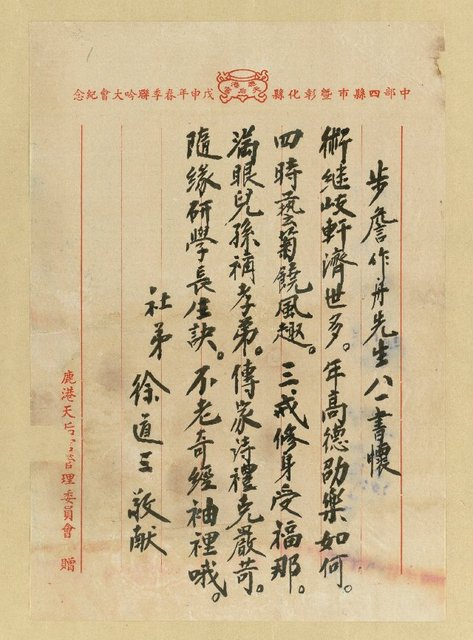 中部四縣市暨彰化縣戊申年春季聯吟大會紀念
步詹作舟先生八一書懷
術継岐軒濟世多。年高德劭樂如何。
四時藝菊饒風趣。三戒修身受福那。
滿眼兒孫稱孝弟。傳家詩禮克嚴苛。
隨緣研學長生訣。不老奇經袖裡哦。
社弟 徐道三 敬献
鹿港天后宮管理委員會 贈